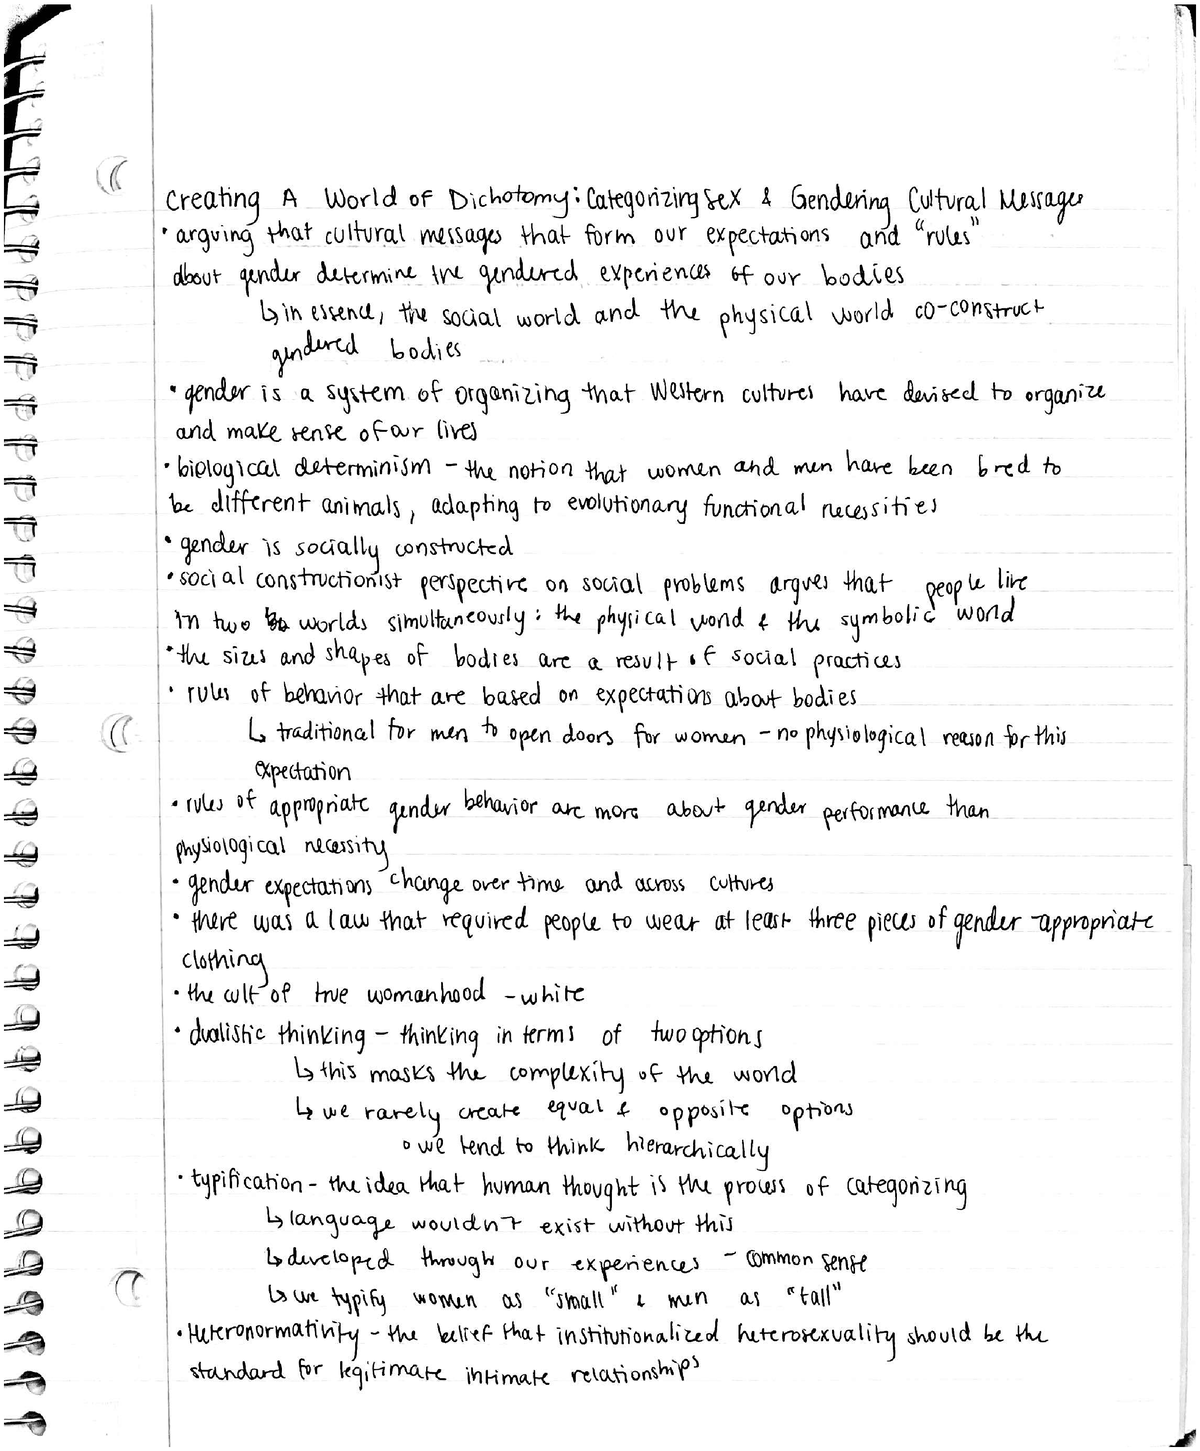 Creating A World of Dichotomy: Categorizing Sex & Gendering Cultural Messages
• arguing that cultural messages that form our expectations and "rules"
about gender determine the gendered experiences of our bodies
↳ in essence, the social world and the physical world co-construct
gendered bodies
• gender is a system of organizing that Western cultures have devised to organize
and make sense of our lives
• biological determinism - the notion that women and men have been bred to
be different animals, adapting to evolutionary functional necessities
• gender is socially constructed
• social constructionist perspective on social problems argues that people live
in two worlds simultaneously: the physical world & the symbolic world
• the sizes and shapes of bodies are a result of social practices
• rules of behavior that are based on expectations about bodies
↳ traditional for men to open doors for women - no physiological reason for this
expectation
• rules of appropriate gender behavior are more about gender performance than
physiological necessity
• gender expectations change over time and across cultures
• there was a law that required people to wear at least three pieces of gender-appropriate
clothing
• the cult of true womanhood - white
• dualistic thinking - thinking in terms of two options
↳ this masks the complexity of the world
↳ we rarely create equal & opposite options
◦ we tend to think hierarchically
• typification - the idea that human thought is the process of categorizing
↳ language wouldn't exist without this
↳ developed through our experiences - common sense
↳ we typify women as "small" & men as "tall"
• Heteronormativity - the belief that institutionalized heterosexuality should be the
standard for legitimate intimate relationships